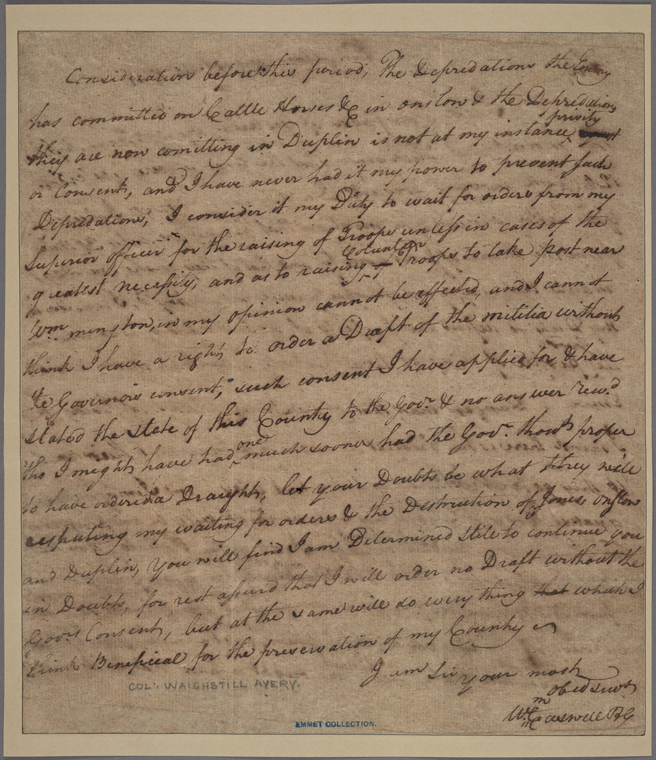 Consideration before this period, The depredations the Enemy
has committed on Cattle Horses &c in onslow & the Depredations
they are now comitting in Duplin is not at my instance, privity
or Consent, and I have never had it my power to prevent such
Depredations, I consider it my Duty to wait for orders from my
superior officer for the raising of Troops unless in cases of the
greatest necessity, and as to raising Volunteer Troops to take post near
Wm mington, in my opinion cannot be effected, and I cannot
think I have a right to order a Draft of the militia without
the Governors consent, such consent I have applied for & have
stated the state of this County to the Govr. & no answer recd.
tho I might have had one much sooner had the Govr. thought proper
to have ordered a Draught, let your Doubts be what they will
respecting my waiting for orders & the Destruction of Jones onslow
and Duplin, you will find I am Determined still to continue you
in Doubts, for rest assurd that I will order no Draft without the
Govrs Consent, but at the same will do every thing that which I
think Beneficial for the preservation of my County
I am Sir your most
obed servt
Wm Caswell BG
COL. WAIGHSTILL AVERY.
EMMET COLLECTION.